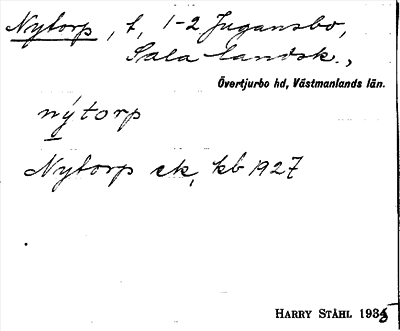 Nytorp, t, 1-2 Jugansbo,
Sala landsk.,
Övertjurbo hd, Västmanlands län.
nýtorp
Nytorp ek, kb 1927
HARRY STÅHL 1935